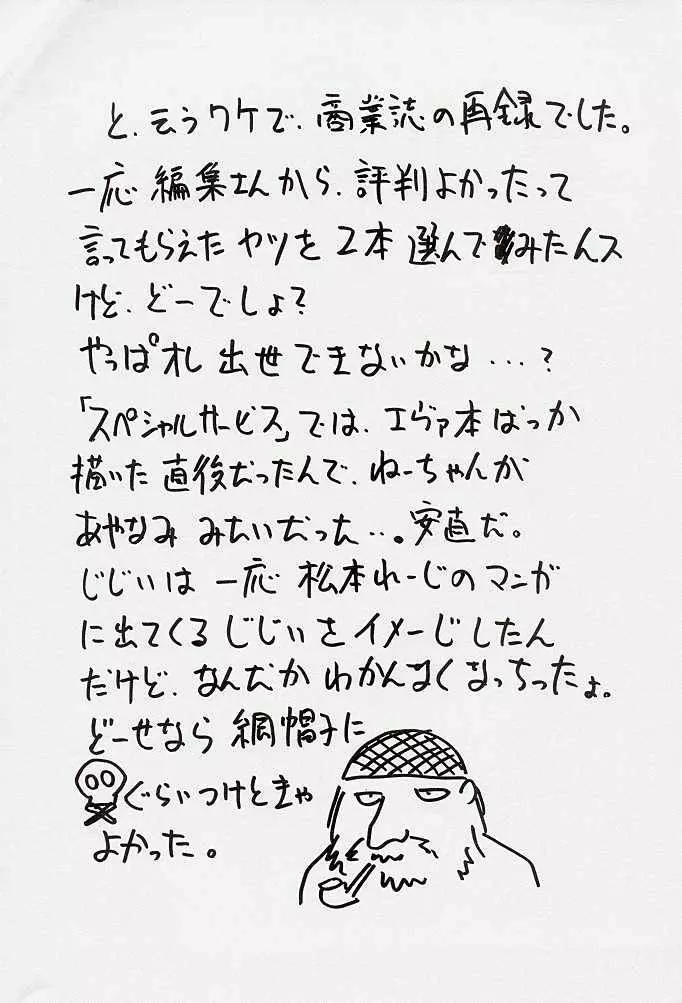 と、云うワケで、商業誌の再録でした。
一応 編集さんから、評判よかったって
言ってもらえた ヤツを 2本 選んで みたんス
けど、どーでしょ？
やっぱオレ 出世できないかな…？
「スペシャルサービス」では、エヴァ本ばっか
描いた 直後だったんで、ねーちゃんが
あやなみ みたいだった…。安直だ。
じじいは 一応 松本れーじのマンガ
に出てくる じじいをイメージしたん
だけど、なんだか わかんなくなっちったょ。
どーせなら 網帽子に
ぐらいつけときゃ
よかった。